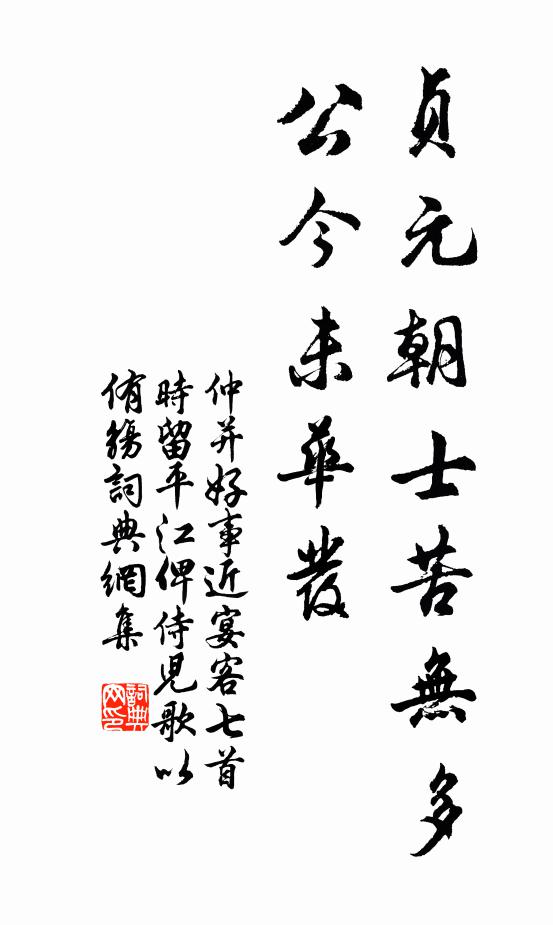 貞元朝士苦無多
公今未華發
仲并好事近宴客七首
時留平江俾侍兒歌以
侑觴詞典網集
詞典网印